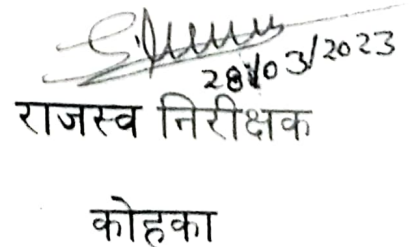 28/03/2023
राजस्व निरीक्षक
कोहका